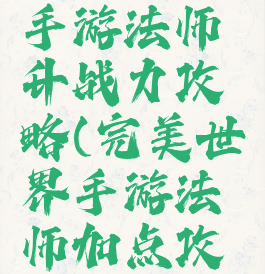 手游法师
升战力攻
略(完美世
界手游法
师加点攻